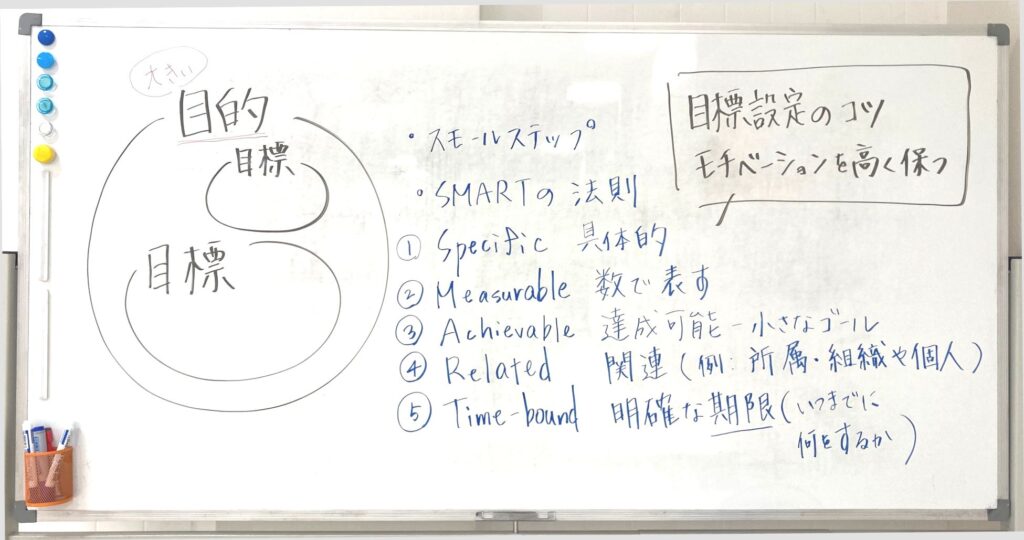 大きい
目的
目標
目標
・スモールステップ
・SMARTの法則
① Specific 具体的
② Measurable 数で表す
③ Achievable 達成可能－小さなゴール
④ Related 関連(例:所属・組織や個人)
⑤ Time-bound 明確な期限(いつまでに
何をするか)
目標設定のコツ
モチベーションを高く保つ